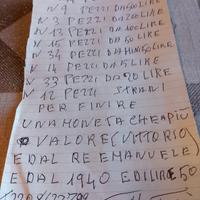 N 9 PEZZI DA 500 LIRE
N 3 PEZZI DA 200 LIRE
N 13 PEZZI DA 100 LIRE
N 15 PEZZI DA 50 LIRE
N 34 PEZZI DA MINI 50 LIRE
N 14 PEZZI DA 5 LIRE
N 33 PEZZI DA 20 LIRE
N 12 PEZZI STRANI
PER FINIRE
UNA MONETA CHE A PIÙ
VALORE (VITTORIO
E DAL RE EMANUELE)
E DAL 1940 E DI LIRE 50